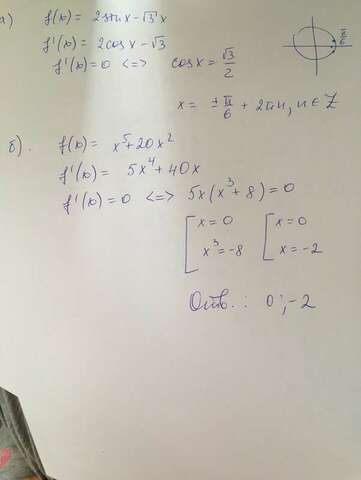 а) f(x) = 2sinx - √3 x
f'(x) = 2cosx - √3
f'(x) = 0 <=> cosx = √3/2
π/6
x = ± π/6 + 2πn, n ∈ Z
б). f(x) = x⁵ + 20x²
f'(x) = 5x⁴ + 40x
f'(x) = 0 <=> 5x(x³ + 8) = 0
[ x = 0 [ x = 0
x³ = -8 x = -2
Отв. : 0 ; -2